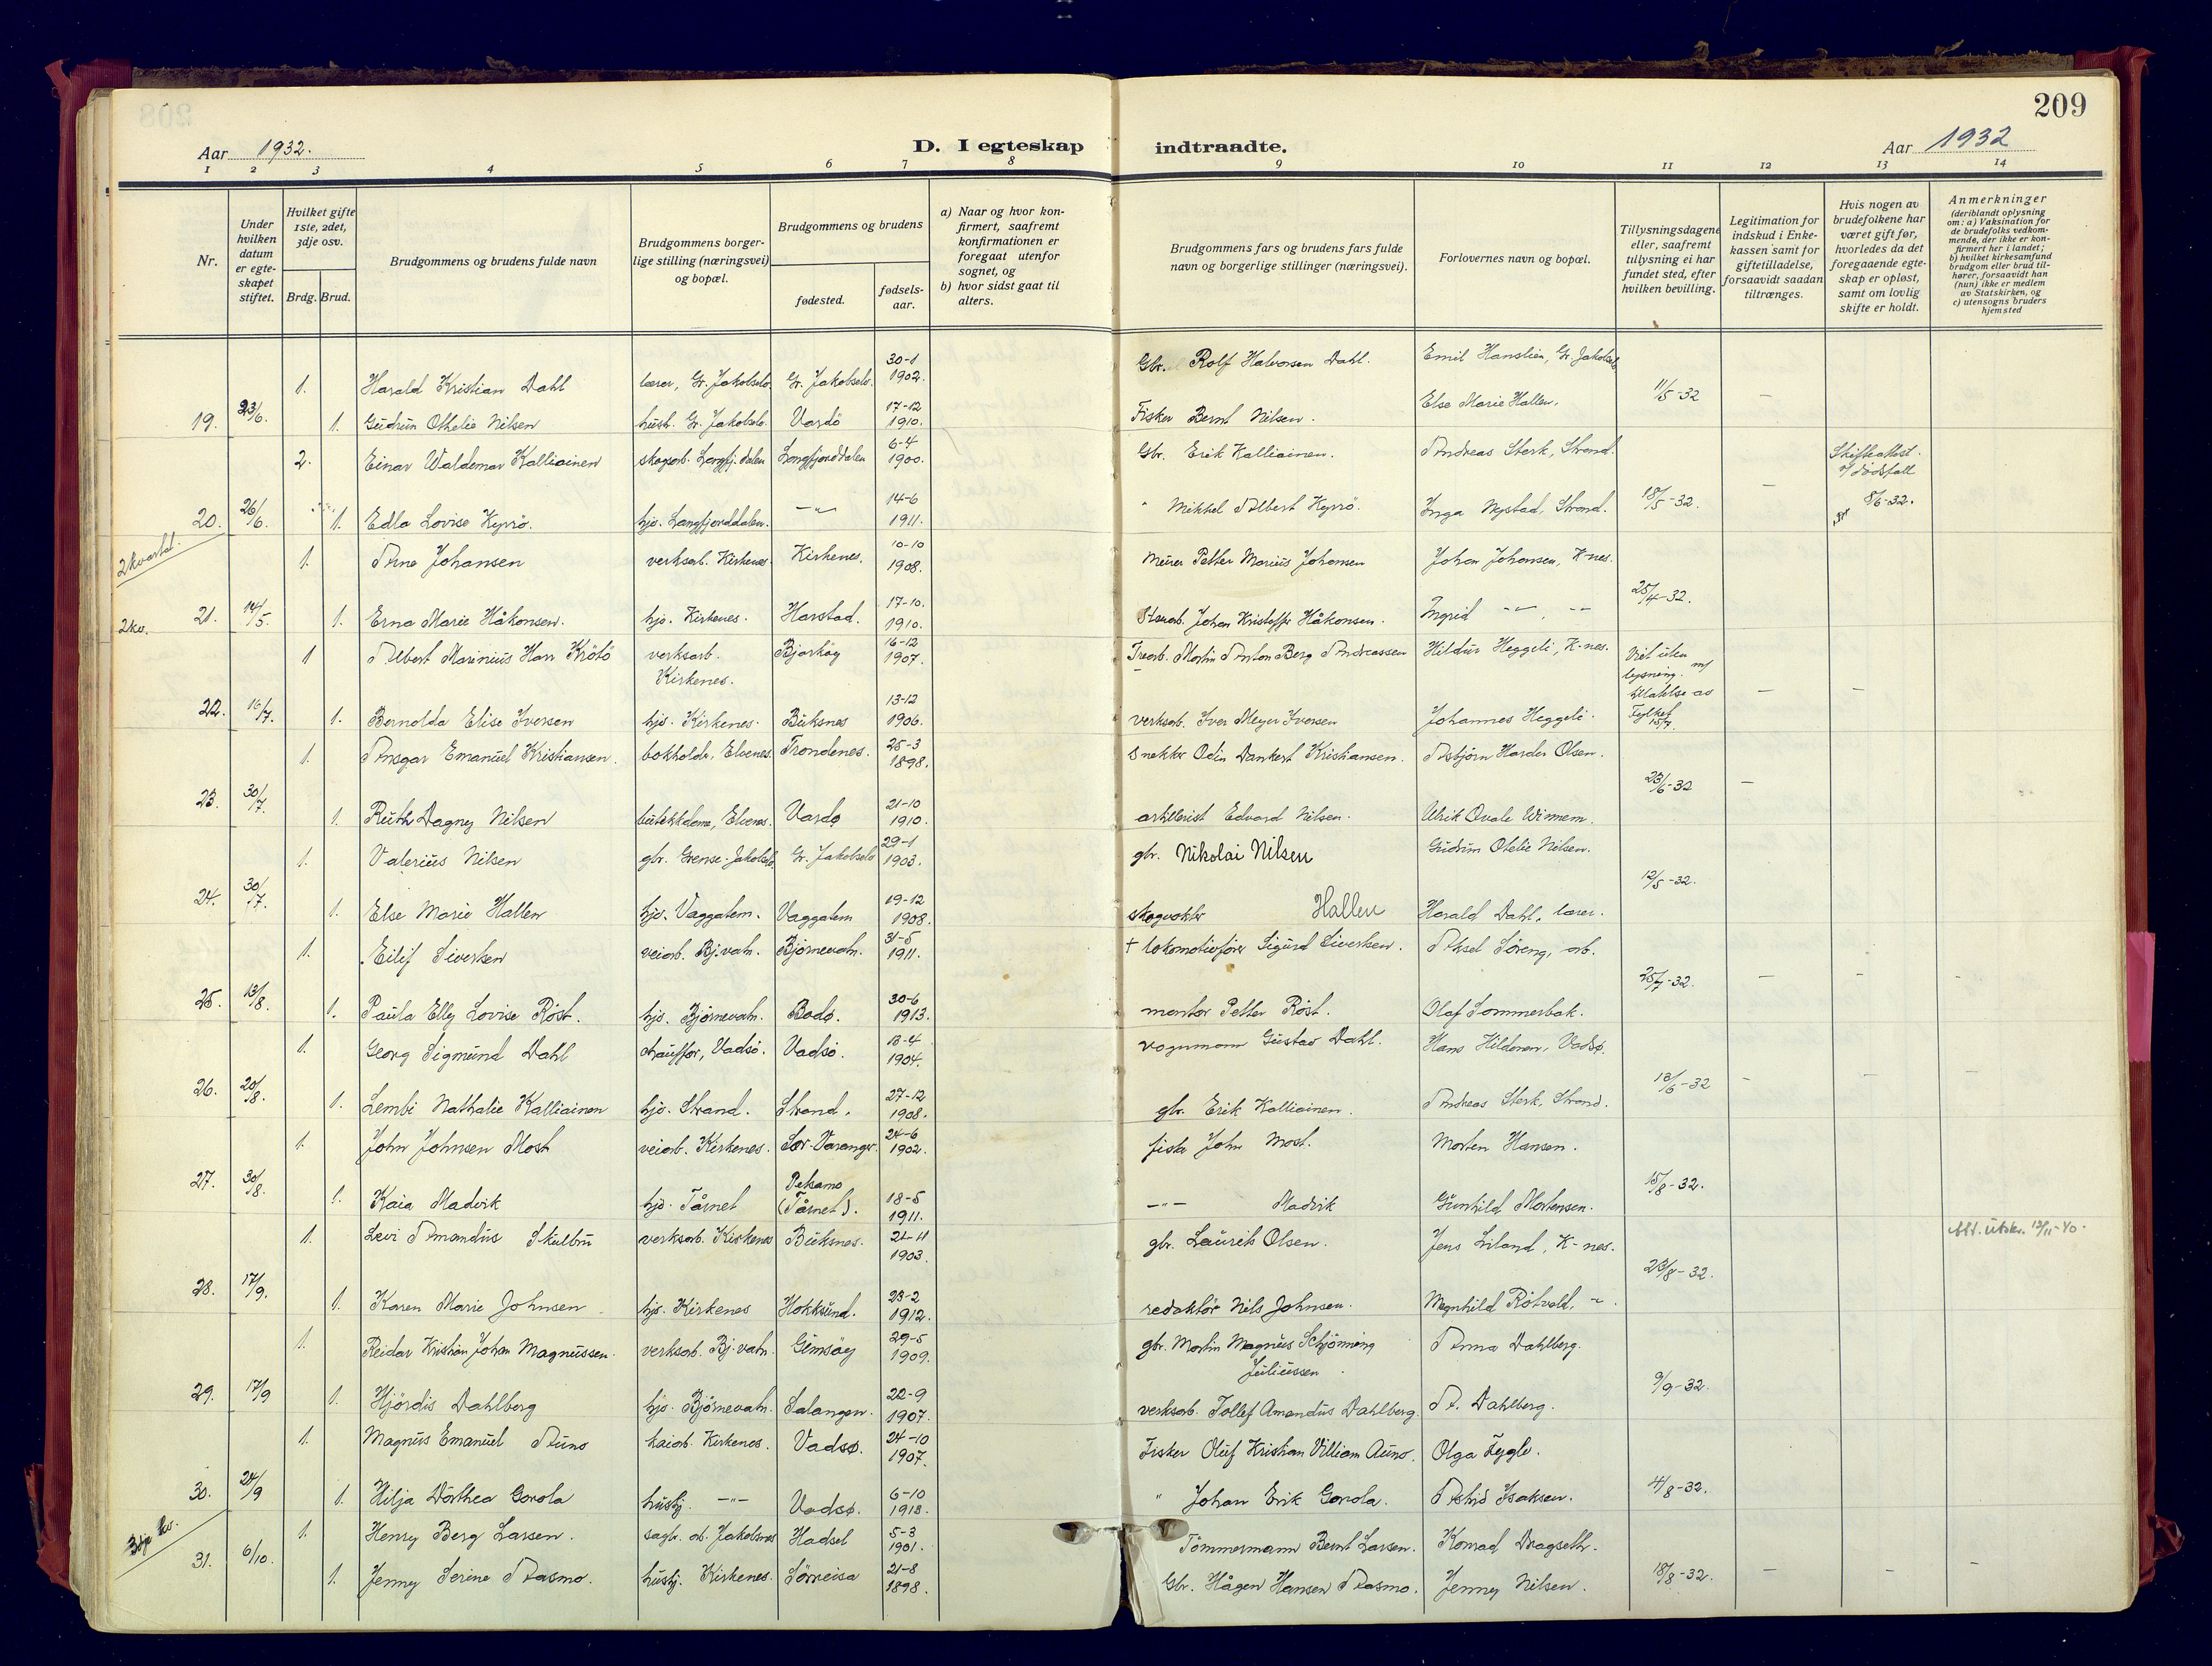 209
Aar 1932.
D. I egteskap indtraadte.
Aar 1932
1 2 3 4 5 6 7 8 9 10 11 12 13 14
Nr.
Under hvilken datum er egteskapet stiftet.
Hvilket gifte 1ste, 2det, 3dje osv.
Brdg. Brud.
Brudgommens og brudens fulde navn
Brudgommens borgerlige stilling (næringsvei) og bopæl.
Brudgommens og brudens
fødested.
fødselsaar.
a) Naar og hvor konfirmert, saafremt konfirmationen er foregaat utenfor sognet, og
b) hvor sidst gaat til alters.
Brudgommens fars og brudens fars fulde navn og borgerlige stillinger (næringsvei).
Forlovernes navn og bopæl.
Tillysningsdagene eller, saafremt tillysning ei har fundet sted, efter hvilken bevilling.
Legitimation for indskud i Enkekassen samt for giftetilladelse, forsaavidt saadan tiltrænges.
Hvis nogen av brudefolkene har været gift før, hvorledes da det foregaaende egteskap er opløst, samt om lovlig skifte er holdt.
Anmerkninger
(deriblandt oplysning om: a) Vaksination for de brudefolks vedkommende, der ikke er konfirmert her i landet; b) hvilket kirkesamfund brudgom eller brud tilhører, forsaavidt han (hun) ikke er medlem av Statskirken, og c) utensogns bruders hjemsted
1. Harald Kristian Dahl lærer, Gr. Jakobselv. Gr. Jakobselv. 30-1 1902. Gbr. Rolf Halvorsen Dahl. Emil Hanslien, Gr. Jakobselv
19. 23/6. 1. Gudrun Othelie Nilsen hush. Gr. Jakobselv. Vardö 17-12 1910. Fisker Bernt Nilsen. Else Marie Hallen. 11/5-32 —
2. Einar Waldemar Kalliainen skogsarb. Langfj.dalen Langfjorddalen 6-4 1900. Gbr. Erik Kalliainen. Andreas Sterk, Strand. Skifteattest. v/dödsfall
20. 26/6. 1. Edla Lovise Kyrö. hjv. Langfjorddalen. —"— 14-6 1911. " Mikkel Albert Kyrö. Inga Nystad, Strand. 18/5-32. — 8/6-32.
2 kvartal.
1. Arne Johansen verksarb. Kirkenes. Kirkenes. 10-10 1908. Murer Petter Marius Johansen Johan Johansen, K-nes.
2 kv. 21. 14/5. 1. Erna Marie Håkonsen. hjv. Kirkenes. Harstad. 17-10. 1910. Johan Kristoffer Håkonsen. Ingrid —"— 25/4-32.
1 Albert Marinius Harr Krötö verksarb. Kirkenes. Bjarköy 16-12 1907. Trearb. Martin Anton Berg Andreassen Hildur Heggeli, K-nes. Viet uten lysning. m/ tillatelse av Fylket 15/7.
22. 16/7. 1. Bernolda Elise Iversen hjv. Kirkenes. Buksnes 13-12 1906. verksarb. Iver Meyer Iversen Johannes Heggeli. — —
1. Ansgar Emanuel Kristiansen. bokholder, Elvenes. Trondenes. 25-3 1898. Snekker Odin Dankert Kristiansen. Asbjørn Harder Olsen.
23. 30/7. 1. Ruth Dagny Nilsen butikkdame, Elvenes. Vardø 21-10 1910. artillerist Edvard Nilsen. Ulrik Ovale Winnem. 23/6-32 —
1. Valerius Nilsen gbr. Grense-Jakobselv. Gr. Jakobselv 29-1 1903. gbr. Nikolai Nilsen Gudrun Otelie Nilsen.
24. 30/7. 1. Else Marie Hallen hjv. Vaggatem. Vaggatem 19-12 1908. skogvokter Hallen Harald Dahl, lærer. 12/5-32.
1. Eilif Sivertsen veiarb. Bj.vatn. Bjørnevatn. 31-5 1911. + lokomotivfører Sigurd Sivertsen. Aksel Søreng, arb.
25. 13/8. 1. Paula Elly Lovise Röst. hjv. Bjørnevatn. Bodø. 30-6 1913. montør Petter Röst. Olaf Sommerbak. 25/7-32. — — —
1. Georg Sigmund Dahl chauffør, Vadsø. Vadsø. 13-4 1904. vognmann Gustav Dahl. Hans Hildonen, Vadsø.
26. 20/8. 1. Lembi Nathalie Kalliainen hjv. Strand. Strand. 27-12 1908. gbr. Erik Kalliainen. Andreas Sterk, Strand. 13/6-32 — — —
1. John Johnsen Most veiarb. Kirkenes. Sør-Varanger. 24-6 1902. fisker John Most. Morten Hansen.
27. 30/8. 1. Kaia Madvik hjv. Tårnet Petsamo (Tårnet). 18-5 1911. —"— Madvik Gunhild Mortensen. 15/8-32.
1. Levi Amandus Skulbru verksarb. Kirkenes Buksnes. 21-11 1903. gbr. Laurits Olsen. Jens Liland, K-nes. Att. utskr. 13/11-40.
28. 17/9. 1. Karen Marie Johnsen hjv. Kirkenes Hokksund. 23-2 1912. redaktör Nils Johnsen. Magnhild Rötvold, —"—. 23/8-32.
1. Reidar Kristian Johan Magnussen. verksarb. Bj.vatn. Gimsöy 29-5 1909. gbr. Martin Magnus Schjönning Juliussen. Anna Dahlberg.
29. 17/9 1. Hjördis Dahlberg hjv. Bjørnevatn. Salangen. 22-9 1907. verksarb. Tollef Amandus Dahlberg. A. Dahlberg. 9/9-32.
1. Magnus Emanuel Auno kaiarb. Kirkenes. Vadsø. 24-10 1907. Fisker Oluf Kristian Villiam Auno. Olga Fygle.
30. 24/9 1. Hilja Dorthea Gorola hushj. —"— Vadsø. 6-10 1913. " Johan Erik Gorola. Astrid Isaksen. 4/8-32.
3dje kv.
1. Henry Berg Larsen. sagbr. arb. Jakobsnes Hadsel 5-3 1901. Tömmermann Bernt Larsen. Konrad Dragseth.
31. 6/10. 1. Jenny Serine Aasmo. hushj. Kirkenes. Sörreisa 21-8 1898. Gbr. Hågen Hansen Aasmo. Jenny Nilsen. 18/8-32. — — —